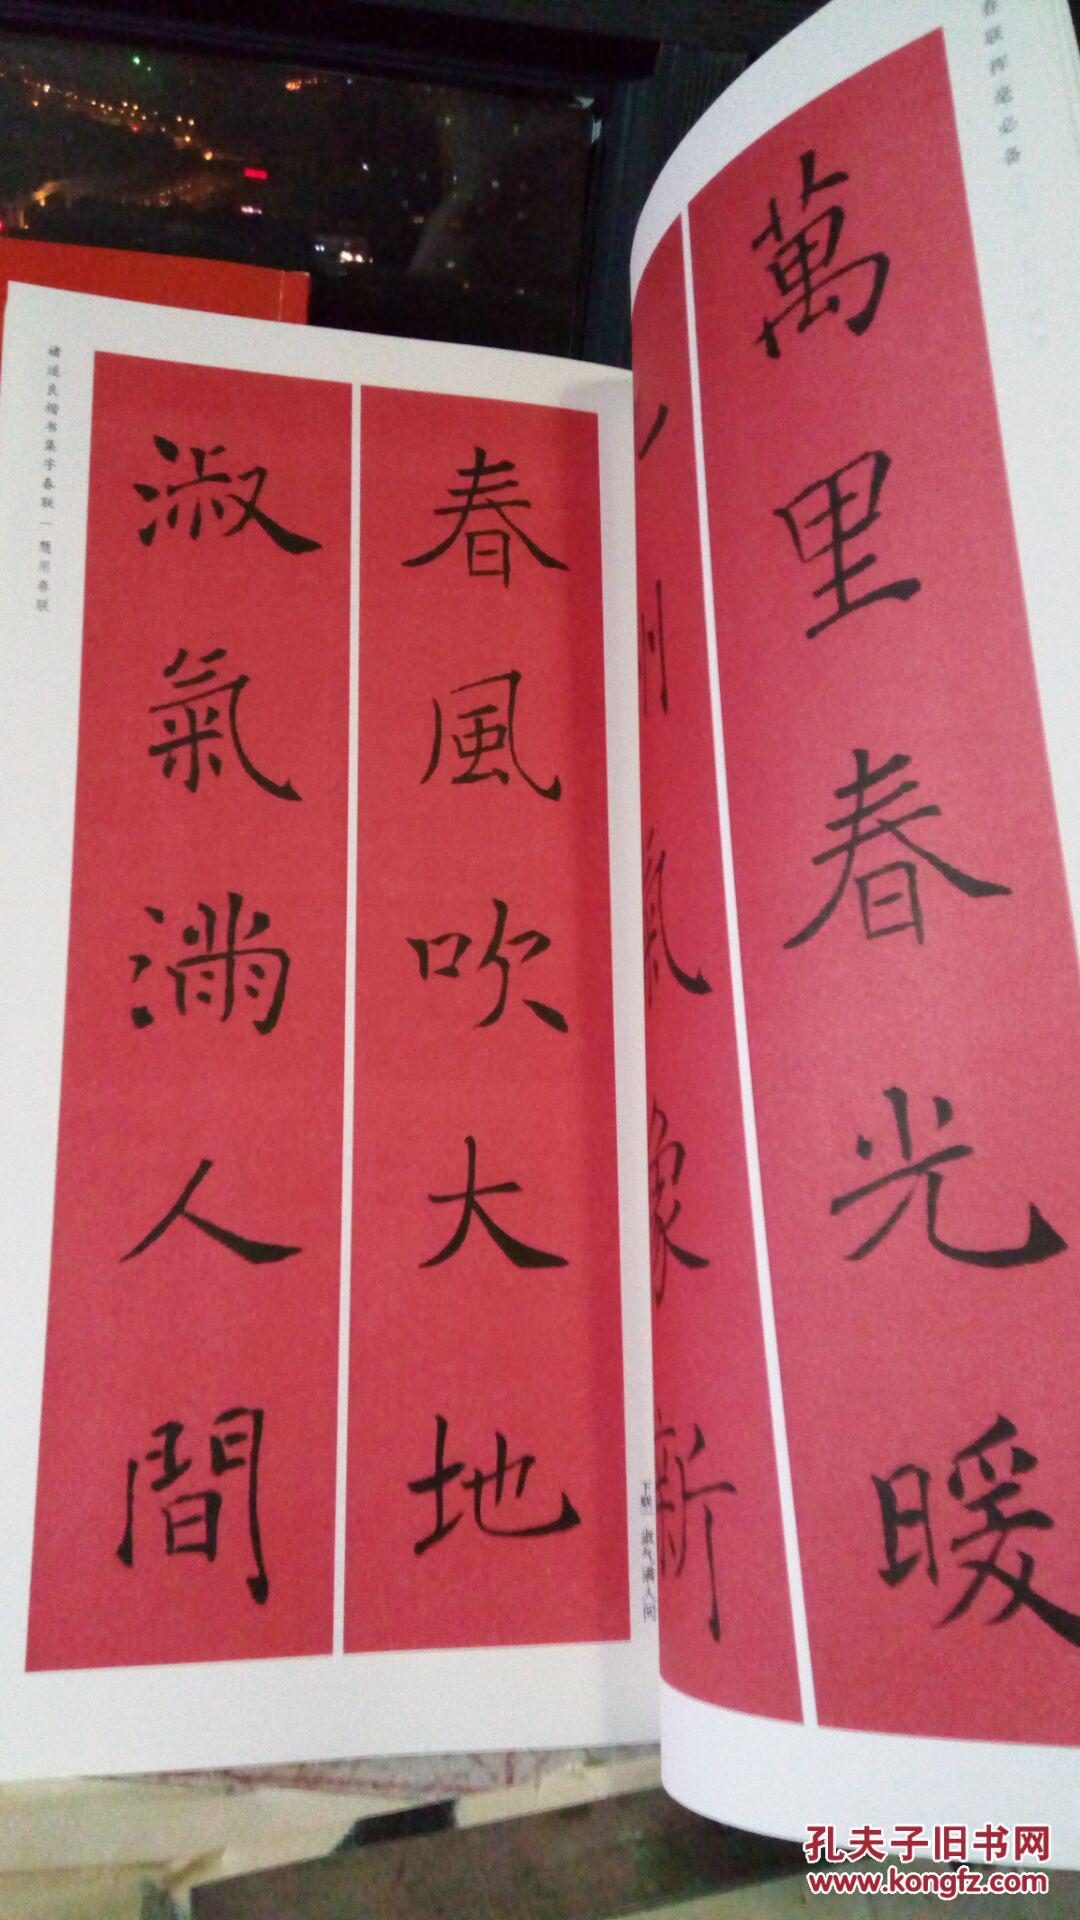 春联挥毫必备
萬里春光暖
州氣象新
春風吹大地
淑氣滿人間
下联 淑气满人间
褚遂良楷书集字春联—通用春联
孔夫子旧书网
www.kongfz.com